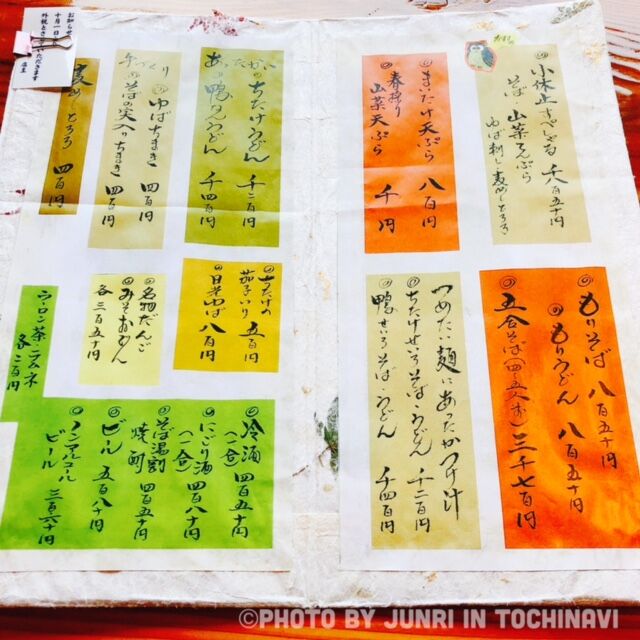 ◎もりそば 八百五十円
◎もりうどん 八百五十円
◎五合そば(四〜五人前) 三千七百円
つめたい麺にあったかつけ汁
◎ちたけせいろそば・うどん 千二百円
◎鴨せいろそば・うどん 千四百円
千八百五十円
そば・山菜天ぷら
ゆば刺し
◎まいたけ天ぷら 八百円
◎春採り山菜天ぷら 千円
あったかい
◎ちたけうどん 千二百円
◎鴨なんうどん 千四百円
◎ちたけの茄子いり 五百円
◎日光ゆば 八百円
手づくり
◎ゆばちまき 四百円
◎そばの実入りちまき 四百円
◎名物だんご
◎みそおでん
各三百五十円
麦めしとろろ 四百円
ウーロン茶・ラムネ
各二百円
◎冷酒(一合) 四百五十円
◎にごり酒(一合) 四百八十円
◎そば湯割焼酎 四百五十円
◎ビール 五百八十円
◎ノンアルコールビール 三百六十円
お知らせ
十月一日
店主
©PHOTO BY JUNRI IN TOCHINAVI